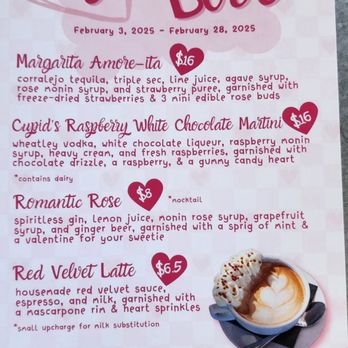 February 3, 2025 - February 28, 2025
Margarita Amore-ita $16
corralejo tequila, triple sec, lime juice, agave syrup,
rose monin syrup, and strawberry puree, garnished with
freeze-dried strawberries & 3 mini edible rose buds
Cupid's Raspberry White Chocolate Martini $16
wheatley vodka, white chocolate liqueur, raspberry monin
syrup, heavy cream, and fresh raspberries, garnished with
chocolate drizzle, a raspberry, & a gummy candy heart
*contains dairy
Romantic Rose $8 *mocktail
spiritless gin, lemon juice, monin rose syrup, grapefruit
syrup, and ginger beer, garnished with a sprig of mint &
a valentine for your sweetie
Red Velvet Latte $6.5
housemade red velvet sauce,
espresso, and milk, garnished with
a mascarpone rim & heart sprinkles
*small upcharge for milk substitution